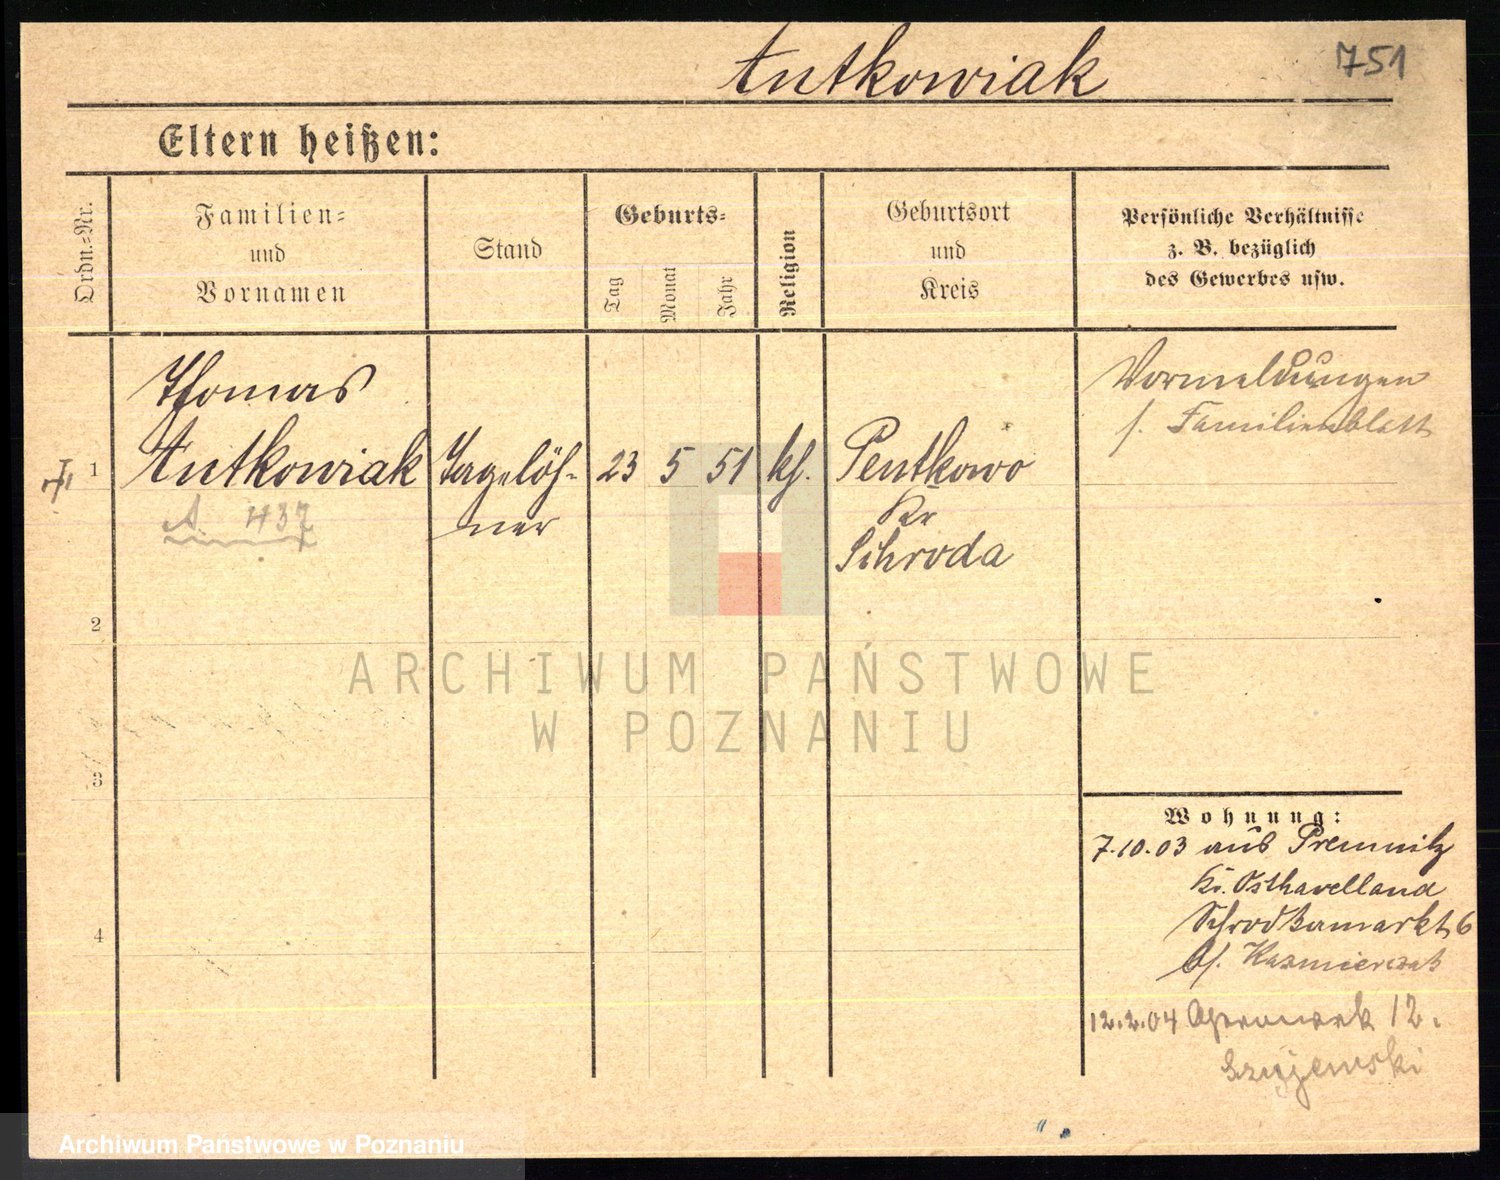 Antkowiak
751
Eltern heißen:
Ordn.=Nr.
Familien=
und
Vornamen
Stand
Geburts=
Tag
Monat
Jahr
Religion
Geburtsort
und
Kreis
Persönliche Verhältnisse
z. B. bezüglich
des Gewerbes usw.
1
Thomas
Antkowiak
Tagelöh-
ner
23
5
51
kh.
Pentkowo
Kr
Schroda
Vormeldungen
s. Familienblatt
A. 1137
2
3
4
Wohnung:
7.10.03 aus Premnitz
Kr. Osthavelland
Schrodkamarkt 6
b/. Kazmierczak
12.2.04 12.
ARCHIWUM PAŃSTWOWE
W POZNANIU
Archiwum Państwowe w Poznaniu